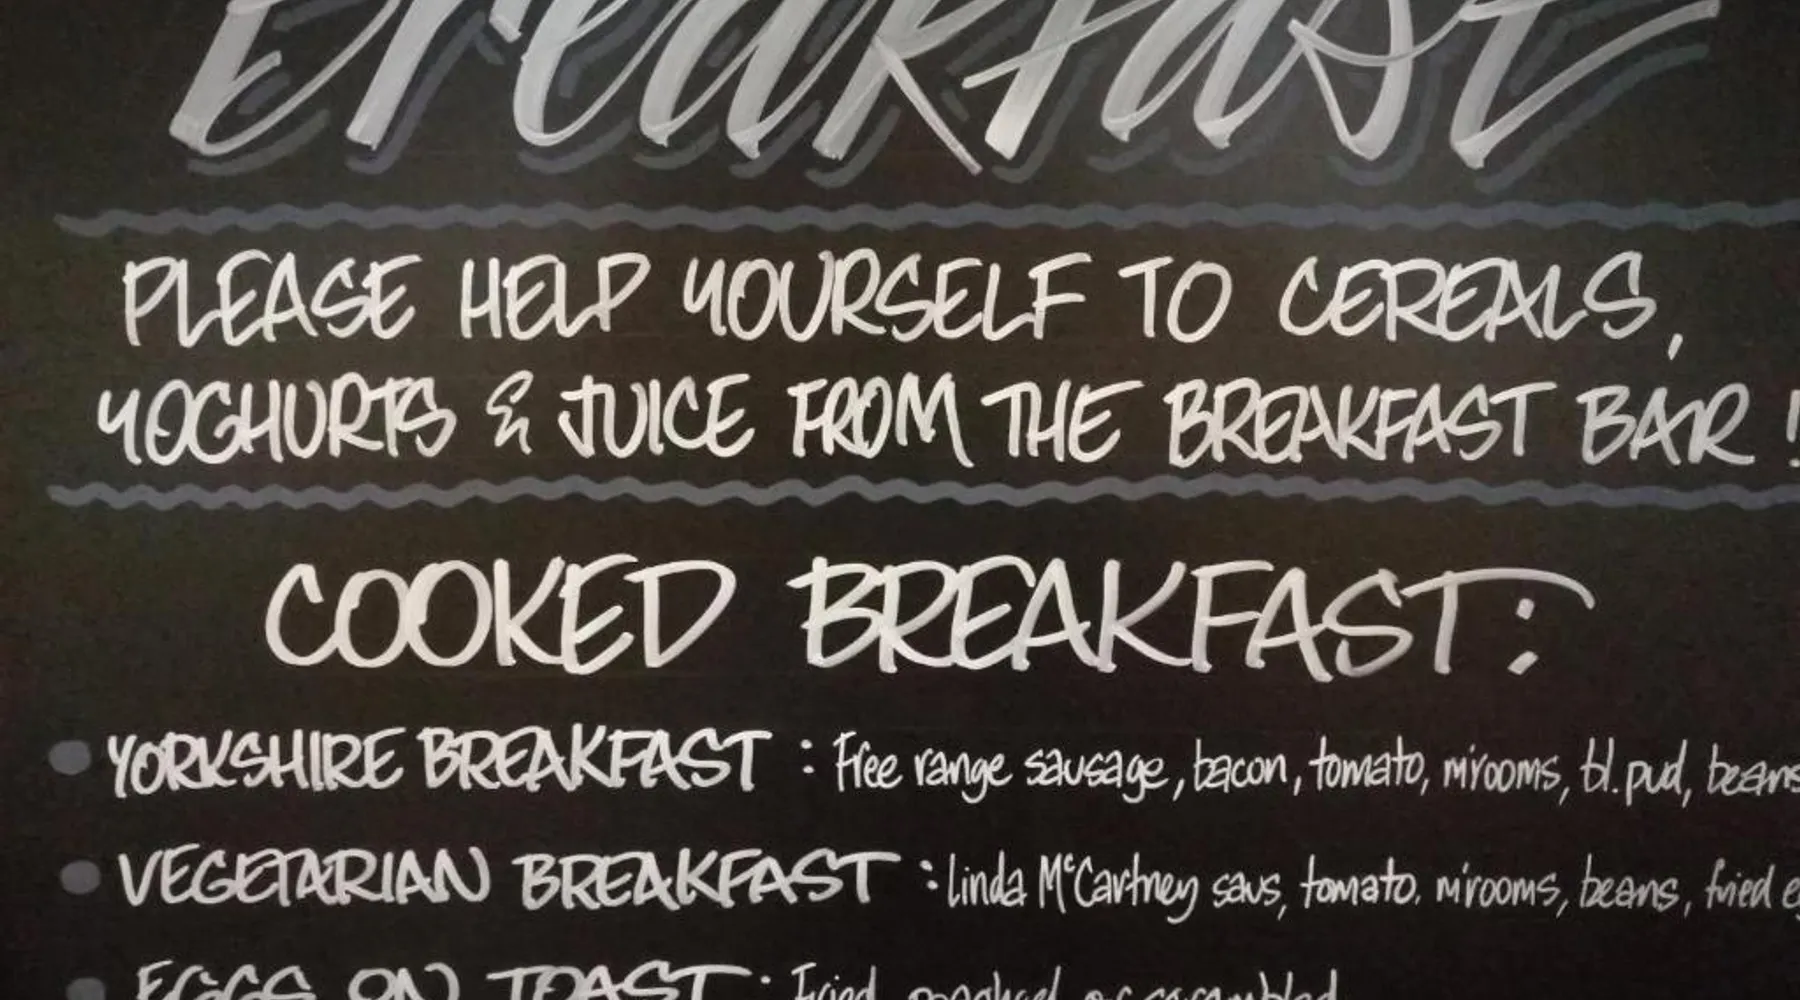 Breakfast
PLEASE HELP YOURSELF TO CEREALS,
YOGHURTS & JUICE FROM THE BREAKFAST BAR!
COOKED BREAKFAST:
YORKSHIRE BREAKFAST: Free range sausage, bacon, tomato, m'rooms, bl. pud, beans
VEGETARIAN BREAKFAST: Linda McCartney saus, tomato. m'rooms, beans, fried
EGGS ON TOAST: Fried, poached or scrambled